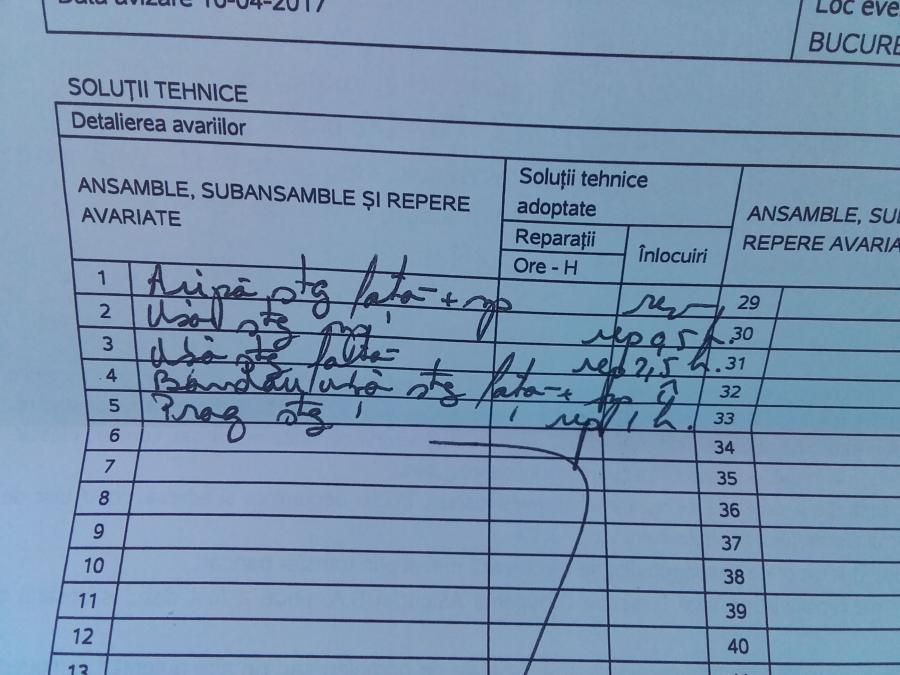 Data avizare 10-04-2017
Loc eve
BUCURE
SOLUȚII TEHNICE
Detalierea avariilor
ANSAMBLE, SUBANSAMBLE ȘI REPERE
AVARIATE
Soluții tehnice
adoptate
Reparații
Ore - H
Înlocuiri
ANSAMBLE, SU
REPERE AVARIA
1 Aripă stg față + 29
2 Ușă stg 30
3 Ușă stg față rep 2,5 h. 31
4 Bandou ușă stg față + Î 32
5 Prag stg rep 1 h. 33
6 34
7 35
8 36
9 37
10 38
11 39
12 40
13